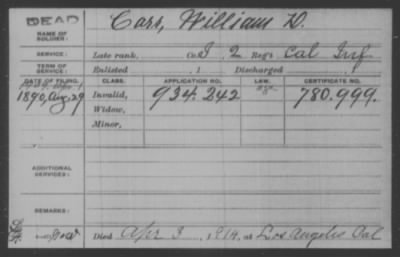 DEAD
NAME OF SOLDIER: Carr, William D.
SERVICE: Late rank, Co. I, 2 Reg't Cal Inf
TERM OF SERVICE: Enlisted , 1 Discharged , 1
DATE OF FILING. CLASS. APPLICATION NO. LAW. CERTIFICATE NO.
1890, Aug. 29 Invalid, 934.242 780.999.
Widow,
Minor,
ADDITIONAL SERVICES:
REMARKS:
Died Apr 3, 1914, at Los Angeles Cal